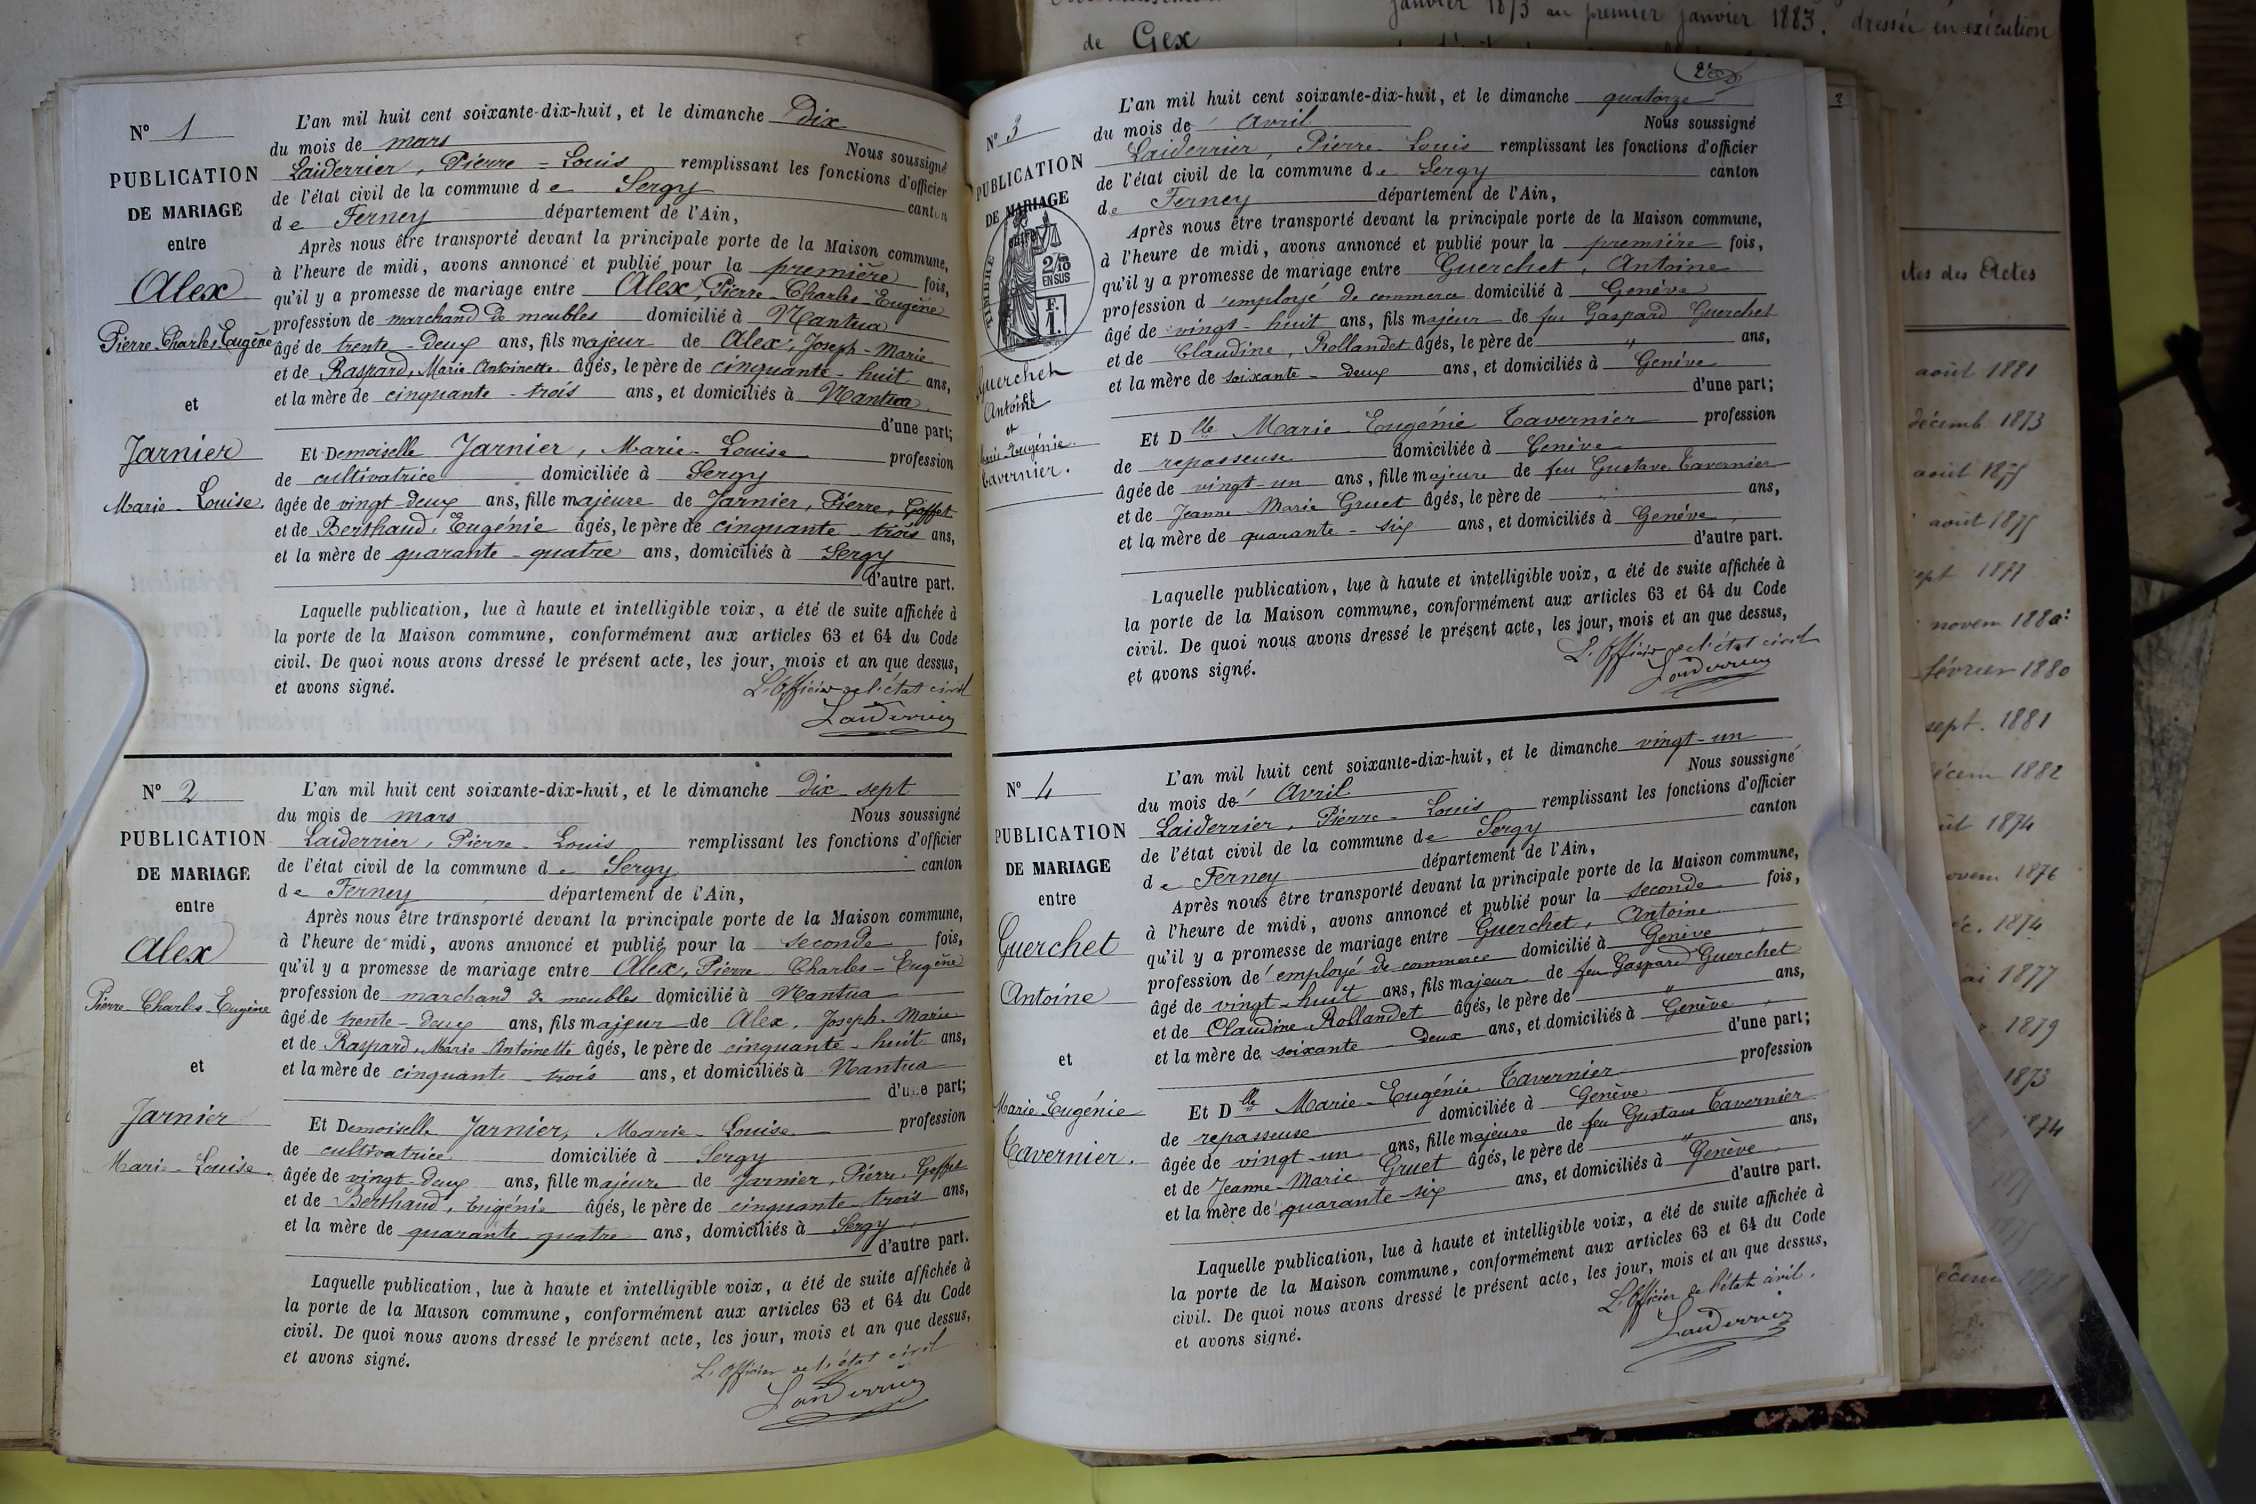 N° 1
PUBLICATION
DE MARIAGE
entre
Alex
Pierre-Charles-Eugène
et
Jarnier
Marie-Louise.
L'an mil huit cent soixante-dix-huit, et le dimanche Dix
du mois de mars Nous soussigné
Laiderrier, Pierre-Louis remplissant les fonctions d'officier
de l'état civil de la commune de Sergy canton
de Ferney département de l'Ain,
Après nous être transporté devant la principale porte de la Maison commune,
à l'heure de midi, avons annoncé et publié pour la première fois,
qu'il y a promesse de mariage entre Alex, Pierre-Charles-Eugène
profession de marchand de meubles domicilié à Nantua
âgé de trente-deux ans, fils majeur de Alex, Joseph-Marie
et de Raspard, Marie-Antoinette âgés, le père de cinquante-huit ans,
et la mère de cinquante-trois ans, et domiciliés à Nantua.
d'une part;
Et Demoiselle Jarnier, Marie-Louise profession
de cultivatrice domiciliée à Sergy
âgée de vingt-deux ans, fille majeure de Jarnier, Pierre, Goffet
et de Berthaud, Eugénie âgés, le père de cinquante-trois ans,
et la mère de quarante-quatre ans, domiciliés à Sergy
d'autre part.
Laquelle publication, lue à haute et intelligible voix, a été de suite affichée à
la porte de la Maison commune, conformément aux articles 63 et 64 du Code
civil. De quoi nous avons dressé le présent acte, les jour, mois et an que dessus,
et avons signé.
L'officier de l'état civil
Laiderrier
N° 2
PUBLICATION
DE MARIAGE
entre
Alex
Pierre-Charles-Eugène
et
Jarnier
Marie-Louise.
L'an mil huit cent soixante-dix-huit, et le dimanche dix-sept
du mois de mars Nous soussigné
Laiderrier, Pierre-Louis remplissant les fonctions d'officier
de l'état civil de la commune de Sergy canton
de Ferney département de l'Ain,
Après nous être transporté devant la principale porte de la Maison commune,
à l'heure de midi, avons annoncé et publié pour la seconde fois,
qu'il y a promesse de mariage entre Alex, Pierre-Charles-Eugène
profession de marchand de meubles domicilié à Nantua
âgé de trente-deux ans, fils majeur de Alex, Joseph-Marie
et de Raspard, Marie-Antoinette âgés, le père de cinquante-huit ans,
et la mère de cinquante-trois ans, et domiciliés à Nantua
d'une part;
Et Demoiselle Jarnier, Marie-Louise profession
de cultivatrice domiciliée à Sergy
âgée de vingt-deux ans, fille majeure de Jarnier, Pierre, Goffet
et de Berthaud, Eugénie âgés, le père de cinquante-trois ans,
et la mère de quarante-quatre ans, domiciliés à Sergy
d'autre part.
Laquelle publication, lue à haute et intelligible voix, a été de suite affichée à
la porte de la Maison commune, conformément aux articles 63 et 64 du Code
civil. De quoi nous avons dressé le présent acte, les jour, mois et an que dessus,
et avons signé.
L'officier de l'état civil
Laiderrier
N° 3
PUBLICATION
DE MARIAGE
entre
TIMBRE
2/10
EN SUS
F.
1.
Guerchet
Antoine
et
Marie-Eugénie
Tavernier.
L'an mil huit cent soixante-dix-huit, et le dimanche quatorze
du mois de Avril Nous soussigné
Laiderrier, Pierre-Louis remplissant les fonctions d'officier
de l'état civil de la commune de Sergy canton
de Ferney département de l'Ain,
Après nous être transporté devant la principale porte de la Maison commune,
à l'heure de midi, avons annoncé et publié pour la première fois,
qu'il y a promesse de mariage entre Guerchet, Antoine
profession d'employé de commerce domicilié à Genève
âgé de vingt-huit ans, fils majeur de feu Gaspard Guerchet
et de Claudine, Rollandet âgés, le père de " ans,
et la mère de soixante-deux ans, et domiciliés à Genève
d'une part;
Et Dlle Marie-Eugénie Tavernier profession
de repasseuse domiciliée à Genève
âgée de vingt-un ans, fille majeure de feu Gustave Tavernier
et de Jeanne Marie Gruet âgés, le père de ans,
et la mère de quarante-six ans, et domiciliés à Genève
d'autre part.
Laquelle publication, lue à haute et intelligible voix, a été de suite affichée à
la porte de la Maison commune, conformément aux articles 63 et 64 du Code
civil. De quoi nous avons dressé le présent acte, les jour, mois et an que dessus,
et avons signé.
L'officier de l'état civil
Laiderrier
N° 4
PUBLICATION
DE MARIAGE
entre
Guerchet
Antoine
et
Marie Eugénie
Tavernier.
L'an mil huit cent soixante-dix-huit, et le dimanche vingt-un
du mois de Avril Nous soussigné
Laiderrier, Pierre-Louis remplissant les fonctions d'officier
de l'état civil de la commune de Sergy canton
de Ferney département de l'Ain,
Après nous être transporté devant la principale porte de la Maison commune,
à l'heure de midi, avons annoncé et publié pour la seconde fois,
qu'il y a promesse de mariage entre Guerchet, Antoine
profession d'employé de commerce domicilié à Genève
âgé de vingt-huit ans, fils majeur de feu Gaspard Guerchet
et de Claudine Rollandet âgés, le père de " ans,
et la mère de soixante-deux ans, et domiciliés à Genève
d'une part;
Et Dlle Marie-Eugénie Tavernier profession
de repasseuse domiciliée à Genève
âgée de vingt-un ans, fille majeure de feu Gustave Tavernier
et de Jeanne-Marie Gruet âgés, le père de " ans,
et la mère de quarante-six ans, et domiciliés à Genève
d'autre part.
Laquelle publication, lue à haute et intelligible voix, a été de suite affichée à
la porte de la Maison commune, conformément aux articles 63 et 64 du Code
civil. De quoi nous avons dressé le présent acte, les jour, mois et an que dessus,
et avons signé.
L'officier de l'état civil.
Laiderrier
janvier 1873 au premier janvier 1883. dressée en exécution
de Gex
des Actes
août 1881
décemb. 1873
août 1875
août 1875
sept 1877
novem 1880
février 1880
sept. 1881
1882
1874
1876
1874
1877
1879
1873
1874